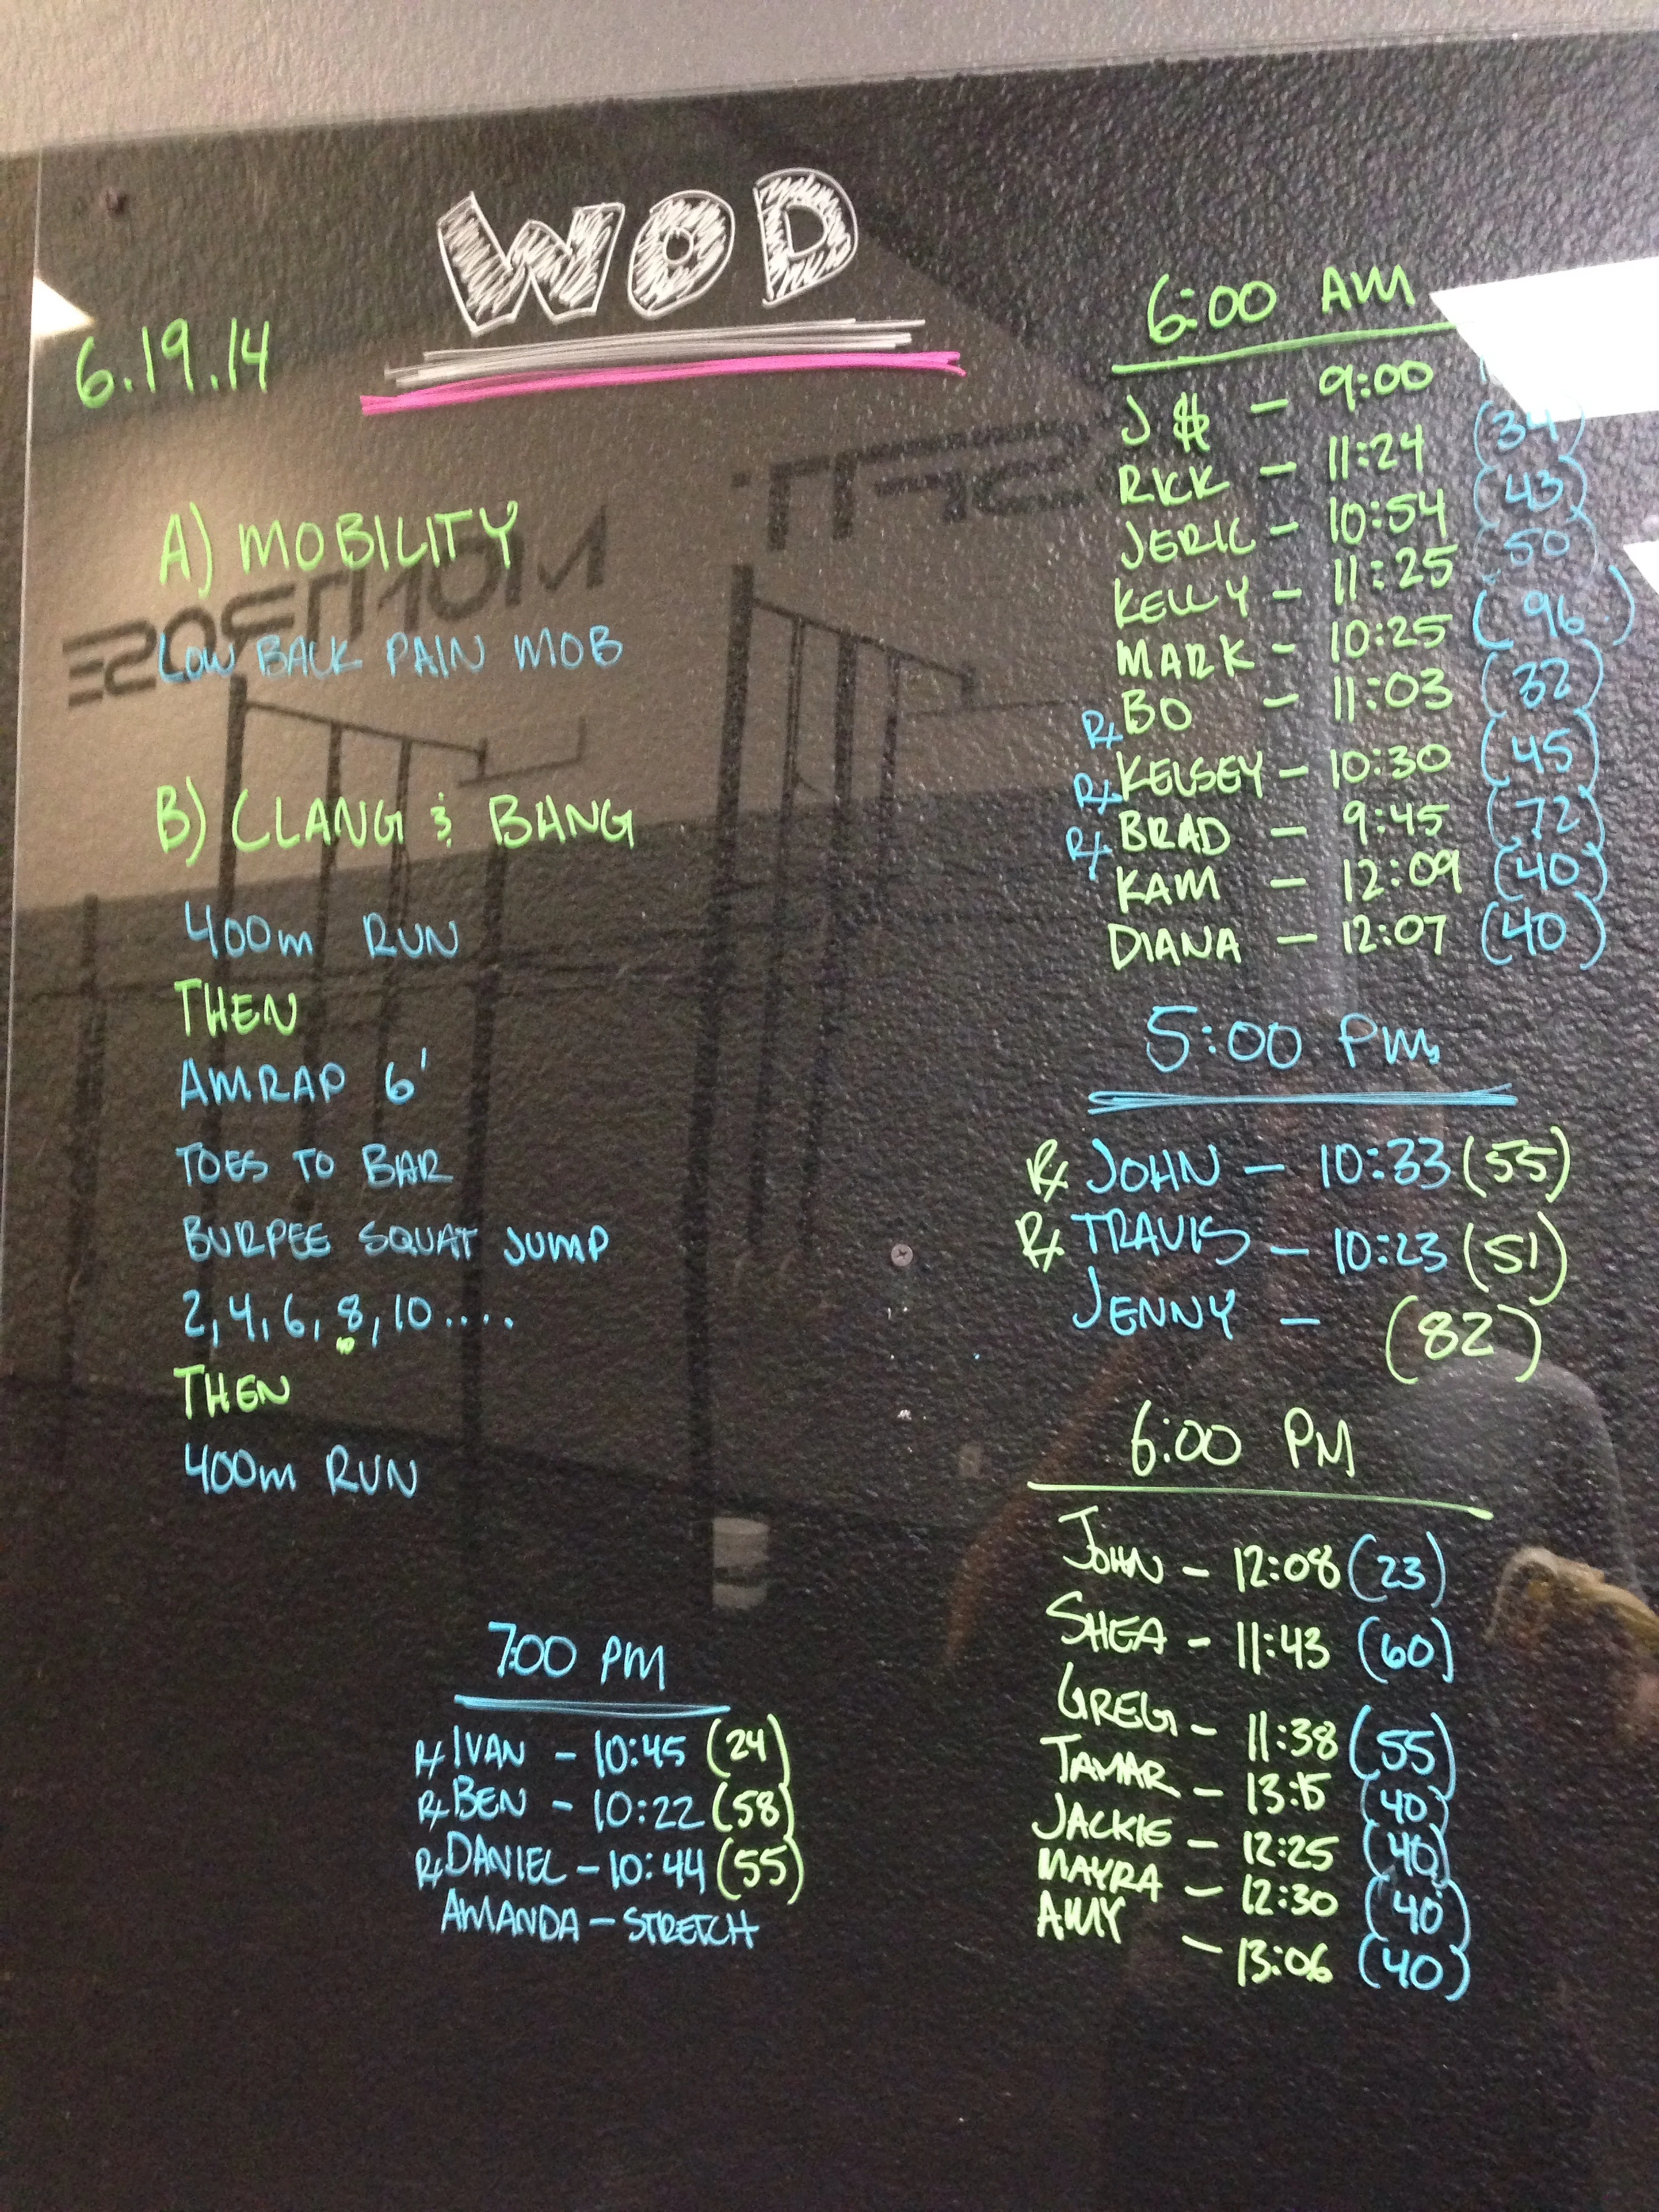 WOD
6.19.14
A) MOBILITY
LOW BACK PAIN MOB
B) CLANG & BANG
400m RUN
THEN
AMRAP 6'
TOES TO BAR
BURPEE SQUAT JUMP
2,4,6,8,10....
THEN
400m RUN
6:00 AM
J$ - 9:00
RICK - 11:24 (34)
JERIC - 10:54 (43)
KELLY - 11:25 (50)
MARK - 10:25 (96)
Rx BO - 11:03 (32)
Rx KELSEY - 10:30 (45)
Rx BRAD - 9:45 (72)
KAM - 12:09 (40)
DIANA - 12:07 (40)
5:00 PM
Rx JOHN - 10:33 (55)
Rx TRAVIS - 10:23 (51)
JENNY - (82)
6:00 PM
JOHN - 12:08 (23)
SHEA - 11:43 (60)
GREG - 11:38 (55)
TAMAR - 13:15 (40)
JACKIE - 12:25 (40)
MAYRA - 12:30 (40)
AMY - 13:06 (40)
7:00 PM
Rx IVAN - 10:45 (24)
Rx BEN - 10:22 (58)
Rx DANIEL - 10:44 (55)
AMANDA - STRETCH